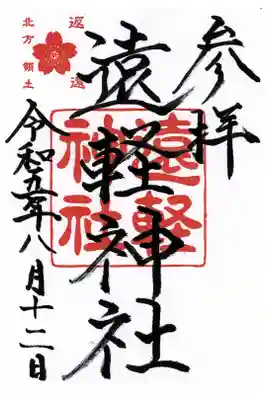 参拝
遠軽神社
遠軽
神社
返還
北方領土
令和五年八月十二日